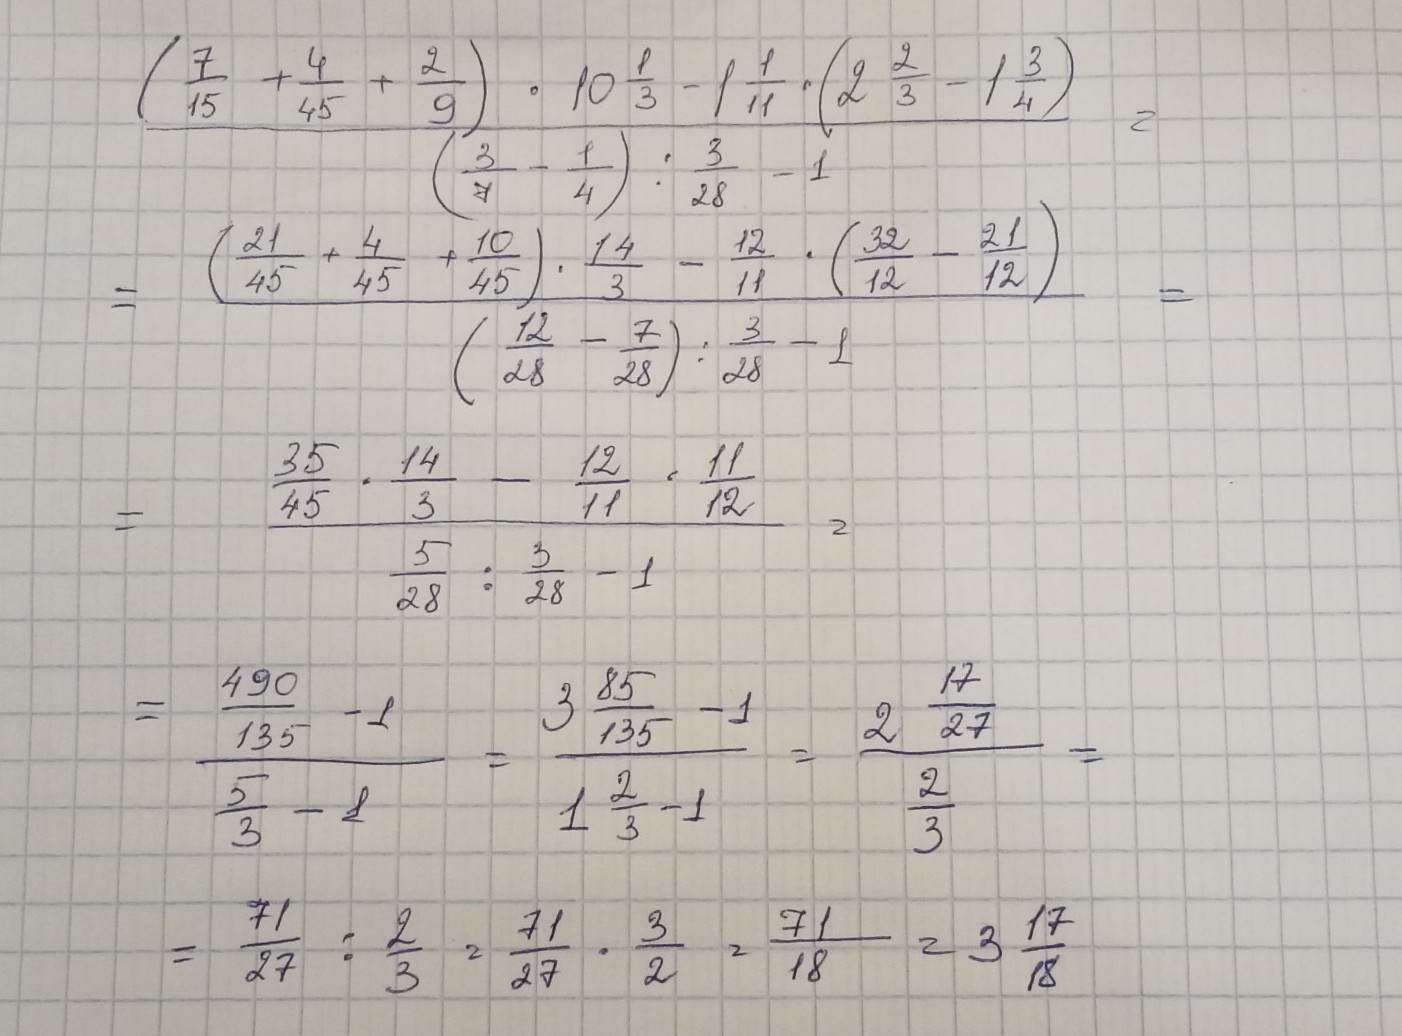 (7/15 + 4/45 + 2/9) · 10 1/3 - 1 1/11 · (2 2/3 - 1 3/4) =
(3/7 - 1/4) : 3/28 - 1
= (21/45 + 4/45 + 10/45) · 14/3 - 12/11 · (32/12 - 21/12) =
(12/28 - 7/28) : 3/28 - 1
= 35/45 · 14/3 - 12/11 · 11/12 =
5/28 : 3/28 - 1
= 490/135 - 1 = 3 85/135 - 1 = 2 17/27 =
5/3 - 1 1 2/3 - 1 2/3
= 71/27 : 2/3 = 71/27 · 3/2 = 71/18 = 3 17/18